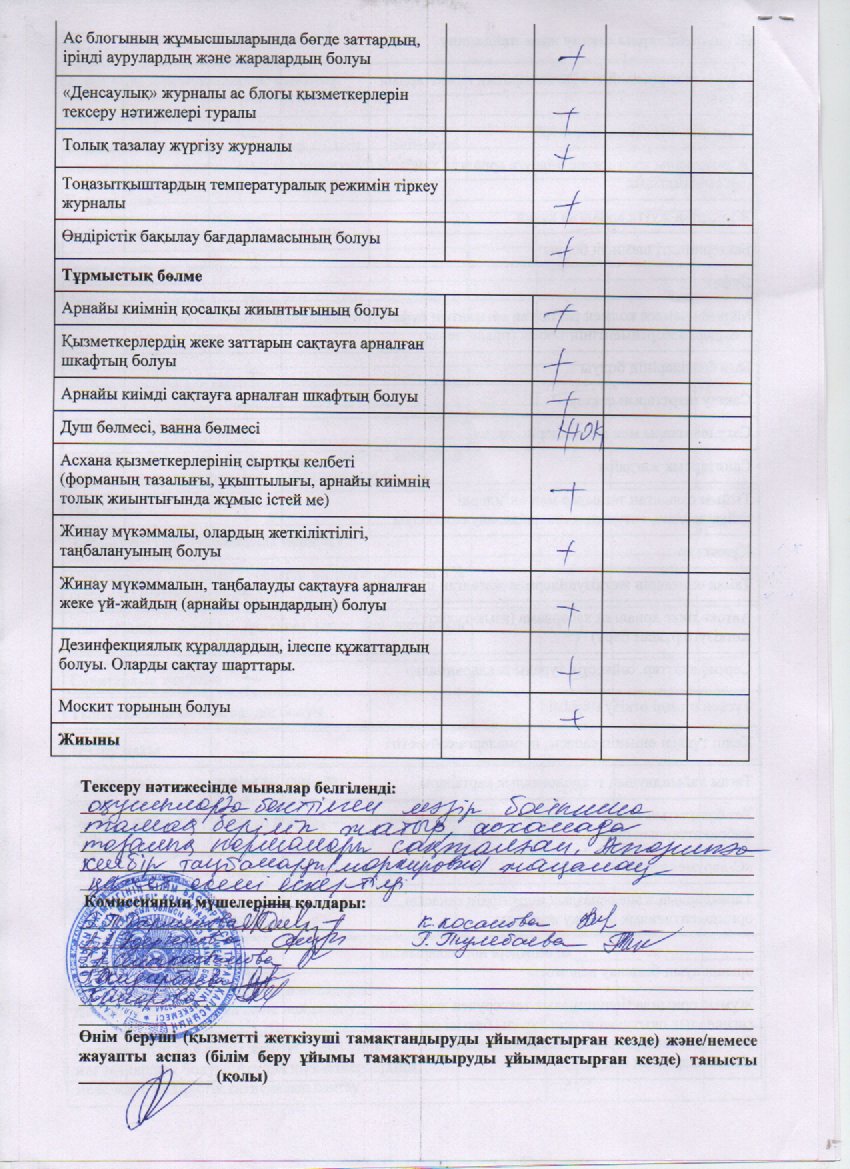 Ас блогының жұмысшыларында бөгде заттардың,
іріңді аурулардың және жаралардың болуы +
«Денсаулық» журналы ас блогы қызметкерлерін
тексеру нәтижелері туралы +
Толық тазалау жүргізу журналы +
Тоңазытқыштардың температуралық режимін тіркеу
журналы +
Өндірістік бақылау бағдарламасының болуы +
Тұрмыстық бөлме
Арнайы киімнің қосалқы жиынтығының болуы +
Қызметкерлердің жеке заттарын сақтауға арналған
шкафтың болуы +
Арнайы киімді сақтауға арналған шкафтың болуы +
Душ бөлмесі, ванна бөлмесі жоқ
Асхана қызметкерлерінің сыртқы келбеті
(форманың тазалығы, ұқыптылығы, арнайы киімнің
толық жиынтығында жұмыс істей ме) +
Жинау мүкәммалы, олардың жеткіліктілігі,
таңбалануының болуы +
Жинау мүкәммалын, таңбалауды сақтауға арналған
жеке үй-жайдың (арнайы орындардың) болуы +
Дезинфекциялық құралдардың, ілеспе құжаттардың
болуы. Оларды сақтау шарттары. +
Москит торының болуы +
Жиыны
Тексеру нәтижесінде мыналар белгіленді:
оқушыларға бекітілген мәзір бойынша
тамақ беріліп жатыр, асханада
тазалық нормалары сақталған.
кейбір таңбаларды (маркировка) жаңалау
ескертілді
Комиссияның мүшелерінің қолдары:
К. Косанова
Г. Тулебаева
Өнім беруші (қызметті жеткізуші тамақтандыруды ұйымдастырған кезде) және/немесе
жауапты аспаз (білім беру ұйымы тамақтандыруды ұйымдастырған кезде) танысты
(қолы)